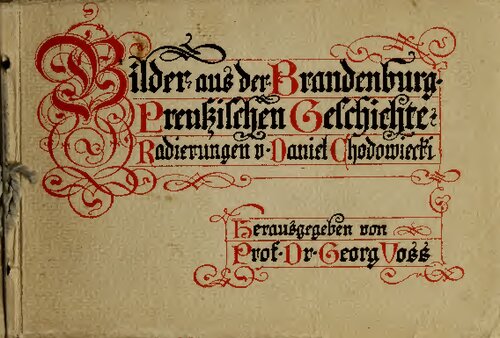 Bilder aus der Brandenburg-
Preußischen Geschichte
Radierungen v. Daniel Chodowiecki
Herausgegeben von
Prof. Dr. Georg Voss